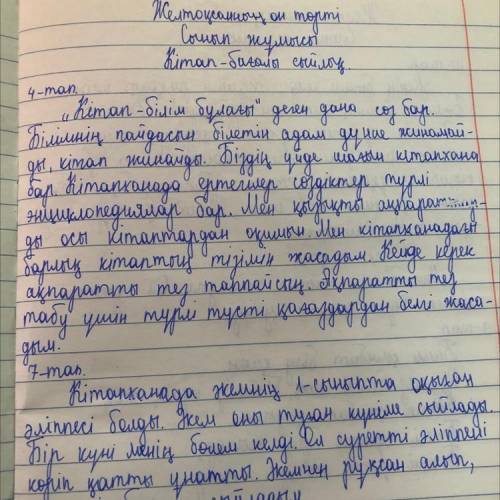 Желтоқсанның он төрті
Сынып жұмысы
Кітап-бағалы сыйлық.
4-тап.
„Кітап-білім бұлағы" деген дана сөз бар.
Білімнің пайдасын білетін адам дүние жинамай-
ды, кітап жинайды. Біздің үйде шағын кітапхана
бар. Кітапханада ертегілер сөздіктер түрлі
энциклопедиялар бар. Мен қызықты
ды осы кітаптардан оқимын. Мен кітапханадағы
барлық кітаптың тізімін жасадым. Кейде керек
ақпаратты тез таппайсың. Ақпаратты тез
табу үшін түрлі түсті қағаздардан белгі жаса-
дым.
7-тап.
Кітапханада әкемнің 1-сыныпта оқыған
әліппесі болды. Әкем оны туған күніме сыйлады.
Бір күні менің бөлем келді. Ол суретті әліппені
көріп қатты ұнатты. Әкемнен рұқсан алып,